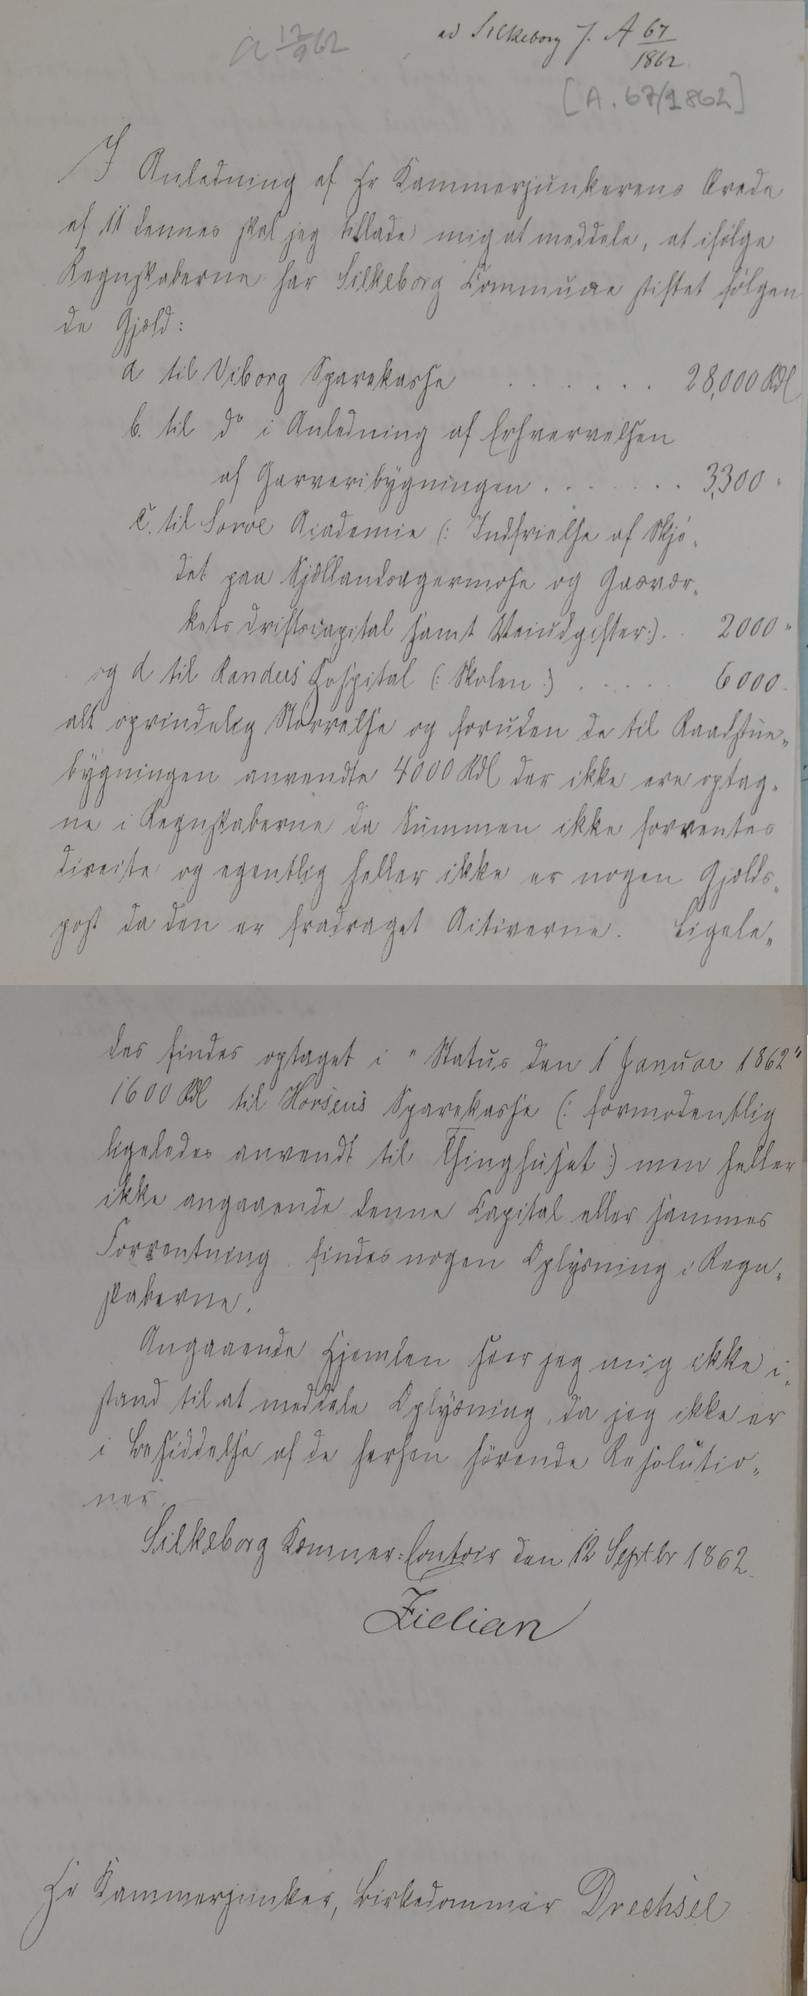 a 12/9 62
ad Silkeborg J. A 67/1862
[A. 67/1862]
I Anledning af Hr Kammerjunkerens Ærede
af 11 dennes skal jeg tillade mig at meddele, at ifølge
Regnskaberne har Silkeborg Commune stiftet følgen
de Gjæld:
a til Viborg Sparekasse . . . . . . 28,000 Rdl
b. til do i Anledning af Erhvervelsen
af Garveribygningen . . . . . . . 3,300 "
c. til Sorøe Academie (: Indfrielse af Skjö-
det paa Sjællandsagermose og Gasvær-
kets Driftscapital samt Veiudgifter:) . . 2000 "
og d til Randers Hospital (: Skolen :) . . . . . 6000.
alt oprindelig Størrelse og foruden de til Raadstue-
bygningen anvendte 4000 Rdl der ikke ere optag-
ne i Regnskaberne da Summen ikke forrentes
directe og egentlig heller ikke er nogen Gjælds-
post da den er fradraget Activerne. Ligele-
des findes optaget i "Status den 1 Januar 1862"
1600 Rdl til Horsens Sparekasse (: formodentlig
ligeledes anvendt til Thinghuset :) men heller
ikke angaaende denne Capital eller sammes
Forrentning findes nogen Oplysning i Regn-
skaberne.
Angaaende Hjemlen seer jeg mig ikke i-
stand til at meddele Oplysning, da jeg ikke er
i Besiddelse af de herhen hörende Resolutio-
ner.
Silkeborg Kæmner-Contoir den 12 Septbr 1862.
Zielian
Hr Kammerjunker, Birkedommer Drechsel